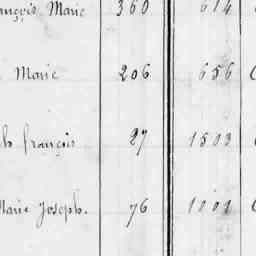 Marie 360 614
Marie 206 656
françois 27 1503
Marie Joseph. 76 1001